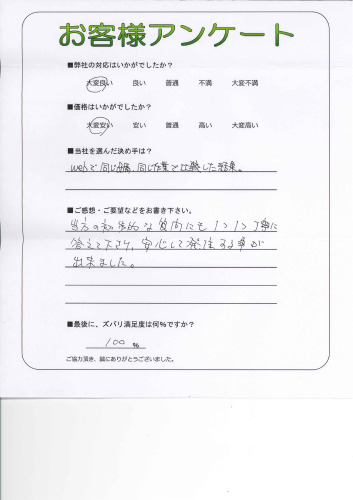 お客様アンケート
■弊社の対応はいかがでしたか？
大変良い 良い 普通 不満 大変不満
■価格はいかがでしたか？
大変安い 安い 普通 高い 大変高い
■当社を選んだ決め手は？
webで同じ 同じ作業で比較した結果。
■ご感想・ご要望などをお書き下さい。
当方の初歩的な質問にも1つ1つ丁寧に
答えて下さり、安心して発注する事が
出来ました。
■最後に、ズバリ満足度は何%ですか？
100 %
ご協力頂き、誠にありがとうございました。